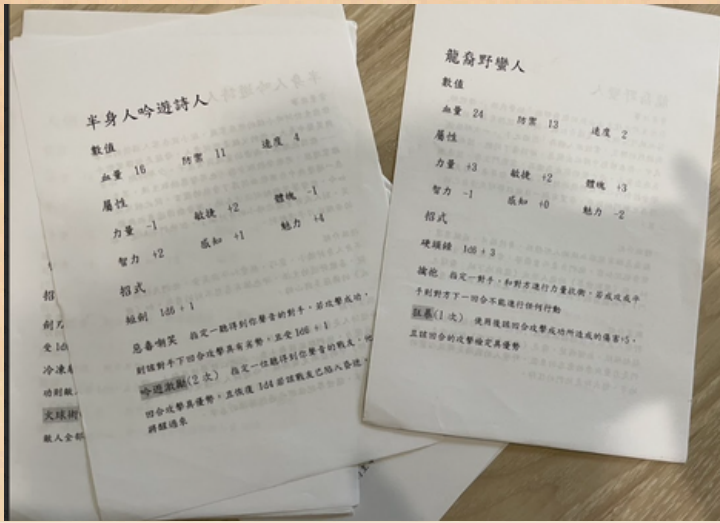 半身人吟遊詩人
數值
血量 16 防禦 11 速度 4
屬性
力量 -1 敏捷 +2 體魄 -1
智力 +2 感知 +1 魅力 +4
招式
短劍 1d6 + 1
惡毒嘲笑 指定一聽得到你聲音的對手，若攻擊成功，
則該對手下回合攻擊具有劣勢，且受 1d6 + 1
吟遊激勵(2 次) 指定一位聽得到你聲音的戰友，他
回合攻擊具優勢，且恢復 1d4 若該戰友已陷入昏迷，
將醒過來
招
受 1d6
冷凍
功則敵
火球術
敵人全部
龍裔野蠻人
數值
血量 24 防禦 13 速度 2
屬性
力量 +3 敏捷 +2 體魄 +3
智力 -1 感知 +0 魅力 -2
招式
硬頭錘 1d6 + 3
擒抱 指定一對手，和對方進行力量抗衡，若成功或平
手則對方下一回合不能進行任何行動
狂暴(1 次) 使用後該回合攻擊成功所造成的傷害+5，
且該回合的攻擊檢定具優勢